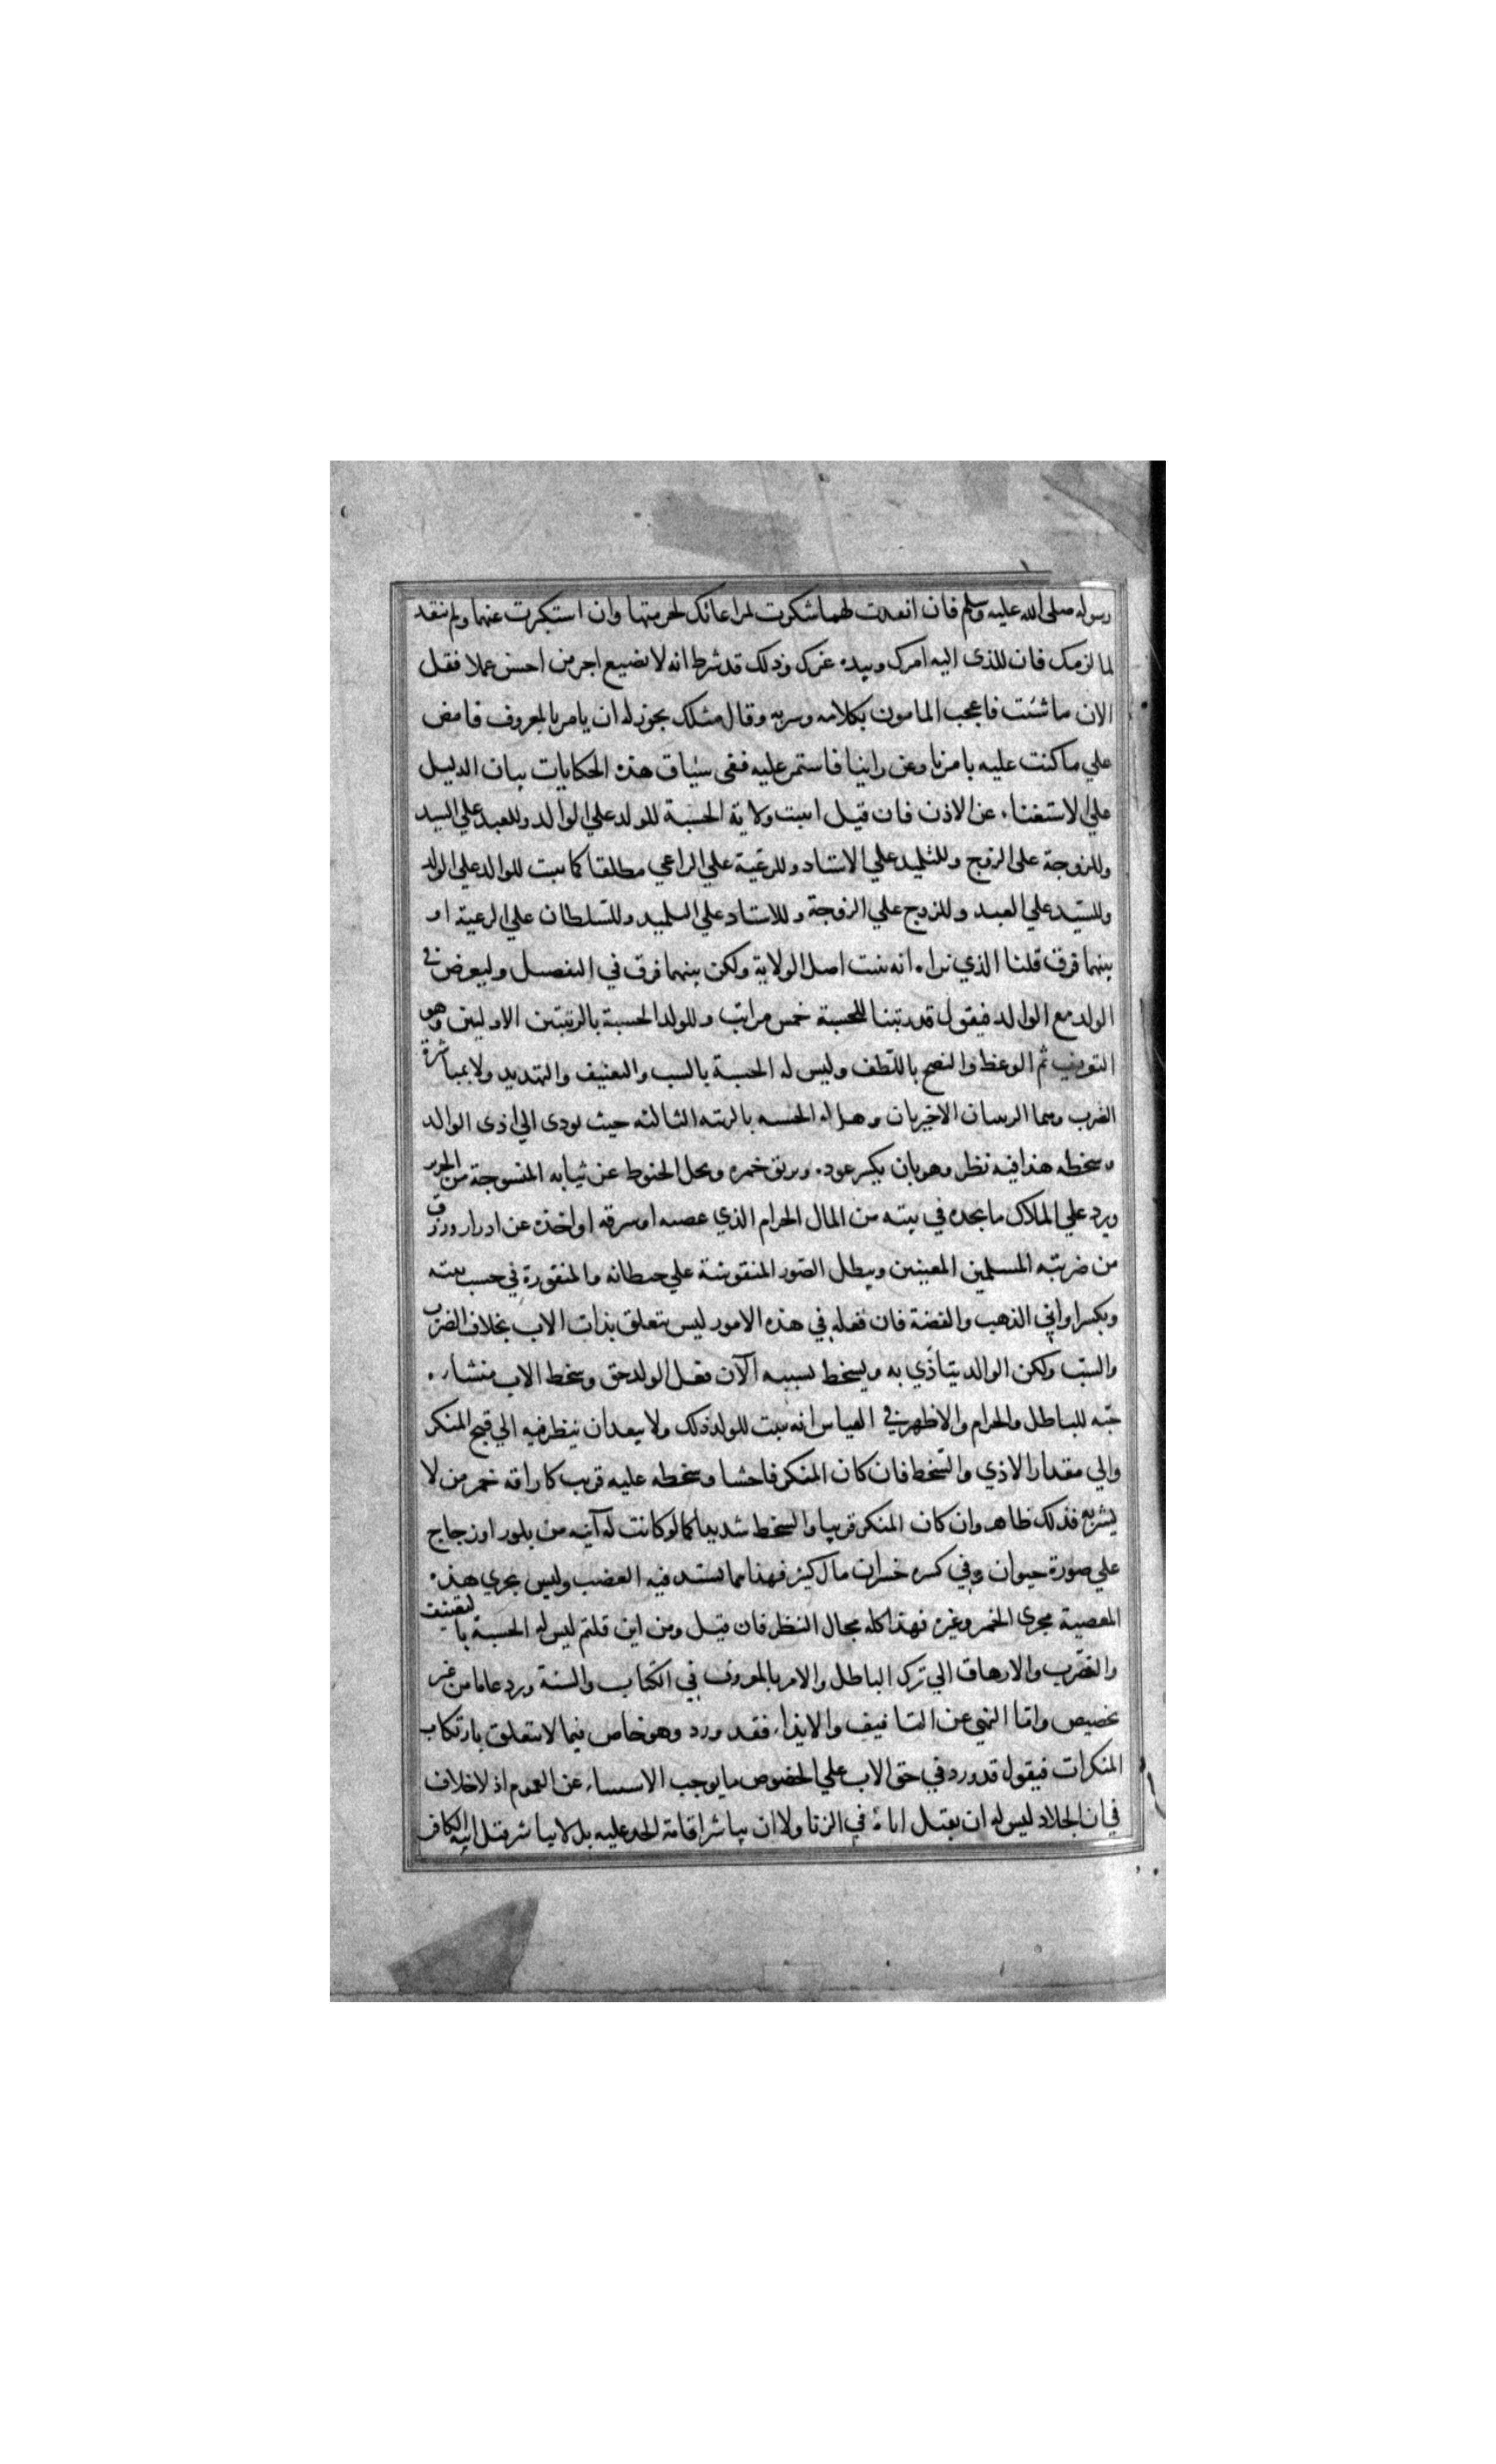 رسوله صلى الله عليه وسلم فان انقدت لهما شكرت لمراعاتك لحرمتهما وان استكبرت عنهما ولم تنقد
لما لزمك فان للذى اليه امرك وبيده عزك وذلك قد شرط انه لا نضيع اجر من احسن عملا فقل
الان ما شئت فاعجب المامون بكلامه وسربه وقال مثلك يجوز له ان يامر بالمعروف فامض
علي ما كنت عليه بامرنا وعن راينا فاستمر عليه ففى سياق هذه الحكايات بيان الدليل
علي الاستغناء عن الاذن فان قيل اثبت ولاية الحسبة للولد علي الوالد وللعبد علي السيد
وللزوجة على الزوج وللتلميذ علي الاستاد وللرعية علي الراعي مطلقا كما يثبت للوالد علي الولد
وللسيد علي العبد وللزوج علي الزوجة وللاستاد علي التلميد وللسلطان علي الرعية او
بينهما فرق قلنا الذي نراه انه يثبت اصل الولاية ولكن بينهما فرق في التفصيل وليعرض في
الولد مع الوالد فيقول قد رتبنا للحسبة خمس مراتب وللولد الحسبة بالرتبتين الاوليين وهو
التعريف ثم الوعظ والنصح باللطف وليس له الحسبة بالسب والتعنيف والتهديد ولا بمباشرة
الضرب وهما الرتبتان الاخيرتان وهل له الحسبه بالرتبه الثالثه حيث يودى الي اذى الوالد
وسخطه هذا فيه نظر وهو بان يكسر عوده ويريق خمره ويحل الخيوط عن ثيابه المنسوجة من الحرير
ويرد علي الملاك ما يجده في بيته من المال الحرام الذي غصبه او سرقه او اخذه عن ادرار ورزق
من ضريبه المسلمين المعينين ويبطل الصور المنقوشة علي حيطانه والمنقورة في خشب بيته
ويكسر اواني الذهب والفضة فان فعله في هذه الامور ليس يتعلق بذات الاب بخلاف الضرب
والسب ولكن الوالد يتاذي به ويسخط بسببه الا ان فعل الولد حق وسخط الاب منشاؤه
حبه للباطل والحرام والاظهر في القياس انه يثبت للولد ذلك ولا يبعد ان ينظر فيه الي قبح المنكر
والي مقدار الاذي والسخط فان كان المنكر فاحشا وسخطه عليه قريب كاراقه خمر من لا
فذلك ظاهر وان كان المنكر قريبا والسخط شديدا كما لو كانت له آنيه من بلور او زجاج
علي صورة حيوان وفي كسره خسران مال كثير فهذا مما يشتد فيه الغضب وليس يجري هذه
المعصية مجرى الخمر وغيره فهذا كله مجال النظر فان قيل ومن اين قلتم ليس له الحسبة بالتعنيف
والضرب والارهاق الي ترك الباطل والامر بالمعروف في الكتاب والسنة ورد عاما من غير
تخصيص واما النهي عن التافيف والايذاء فقد ورد وهو خاص فيما لا يتعلق بارتكاب
المنكرات فيقول قد ورد في حق الاب علي الخصوص ما يوجب الاستثناء عن العموم اذ لا خلاف
في ان الجلاد ليس له ان يقتل اباه في الزنا ولا ان يباشر اقامة الحد عليه بل لا يباشر قتل ابيه الكافر